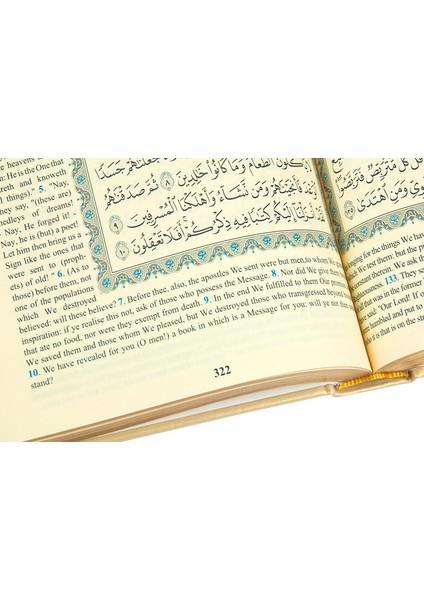 جَعَلْنَاهُمْ جَسَدًا
يَأْكُلُونَ الطَّعَامَ وَمَا كَانُوا خَالِدِينَ ٨ ثُمَّ صَدَقْنَاهُمُ
فَأَنْجَيْنَاهُمْ وَمَنْ نَشَاءُ وَأَهْلَكْنَا الْمُسْرِفِينَ ٩
لَقَدْ أَنْزَلْنَا إِلَيْكُمْ كِتَابًا فِيهِ ذِكْرُكُمْ أَفَلَا تَعْقِلُونَ ١٠
heavens
He is the One that
and knoweth
5. "Nay,
they say, "(these are)
medleys of dreams!
Nay, He forged it! -
Nay, he is (but) a poet!
Let him then bring us a
Sign like the ones that
were sent to (proph-
ets) of old!" 6. (As to
those) before them, not
one of the populations
which We destroyed
believed: will these believe? 7. Before thee, also, the apostles We sent were but men, to whom We
inspiration: if ye realise this not, ask of those who possess the Message. 8. Nor did We give them
that ate no food, nor were they exempt from death. 9. In the end We fulfilled to them Our
We saved them and those whom We pleased, but We destroyed those who transgressed beyond
10. We have revealed for you (O men!) a book in which is a Message for you: will ye not
stand?
322
قُلْ كُلٌّ مُتَرَبِّصٌ فَتَرَبَّصُوا
وَمَنِ اهْتَدَى ١٣٥
for the things We have
test them: but the
therein. We ask thee
133. They
said: "Our Lord! If
humbled and put to
it is that is on the